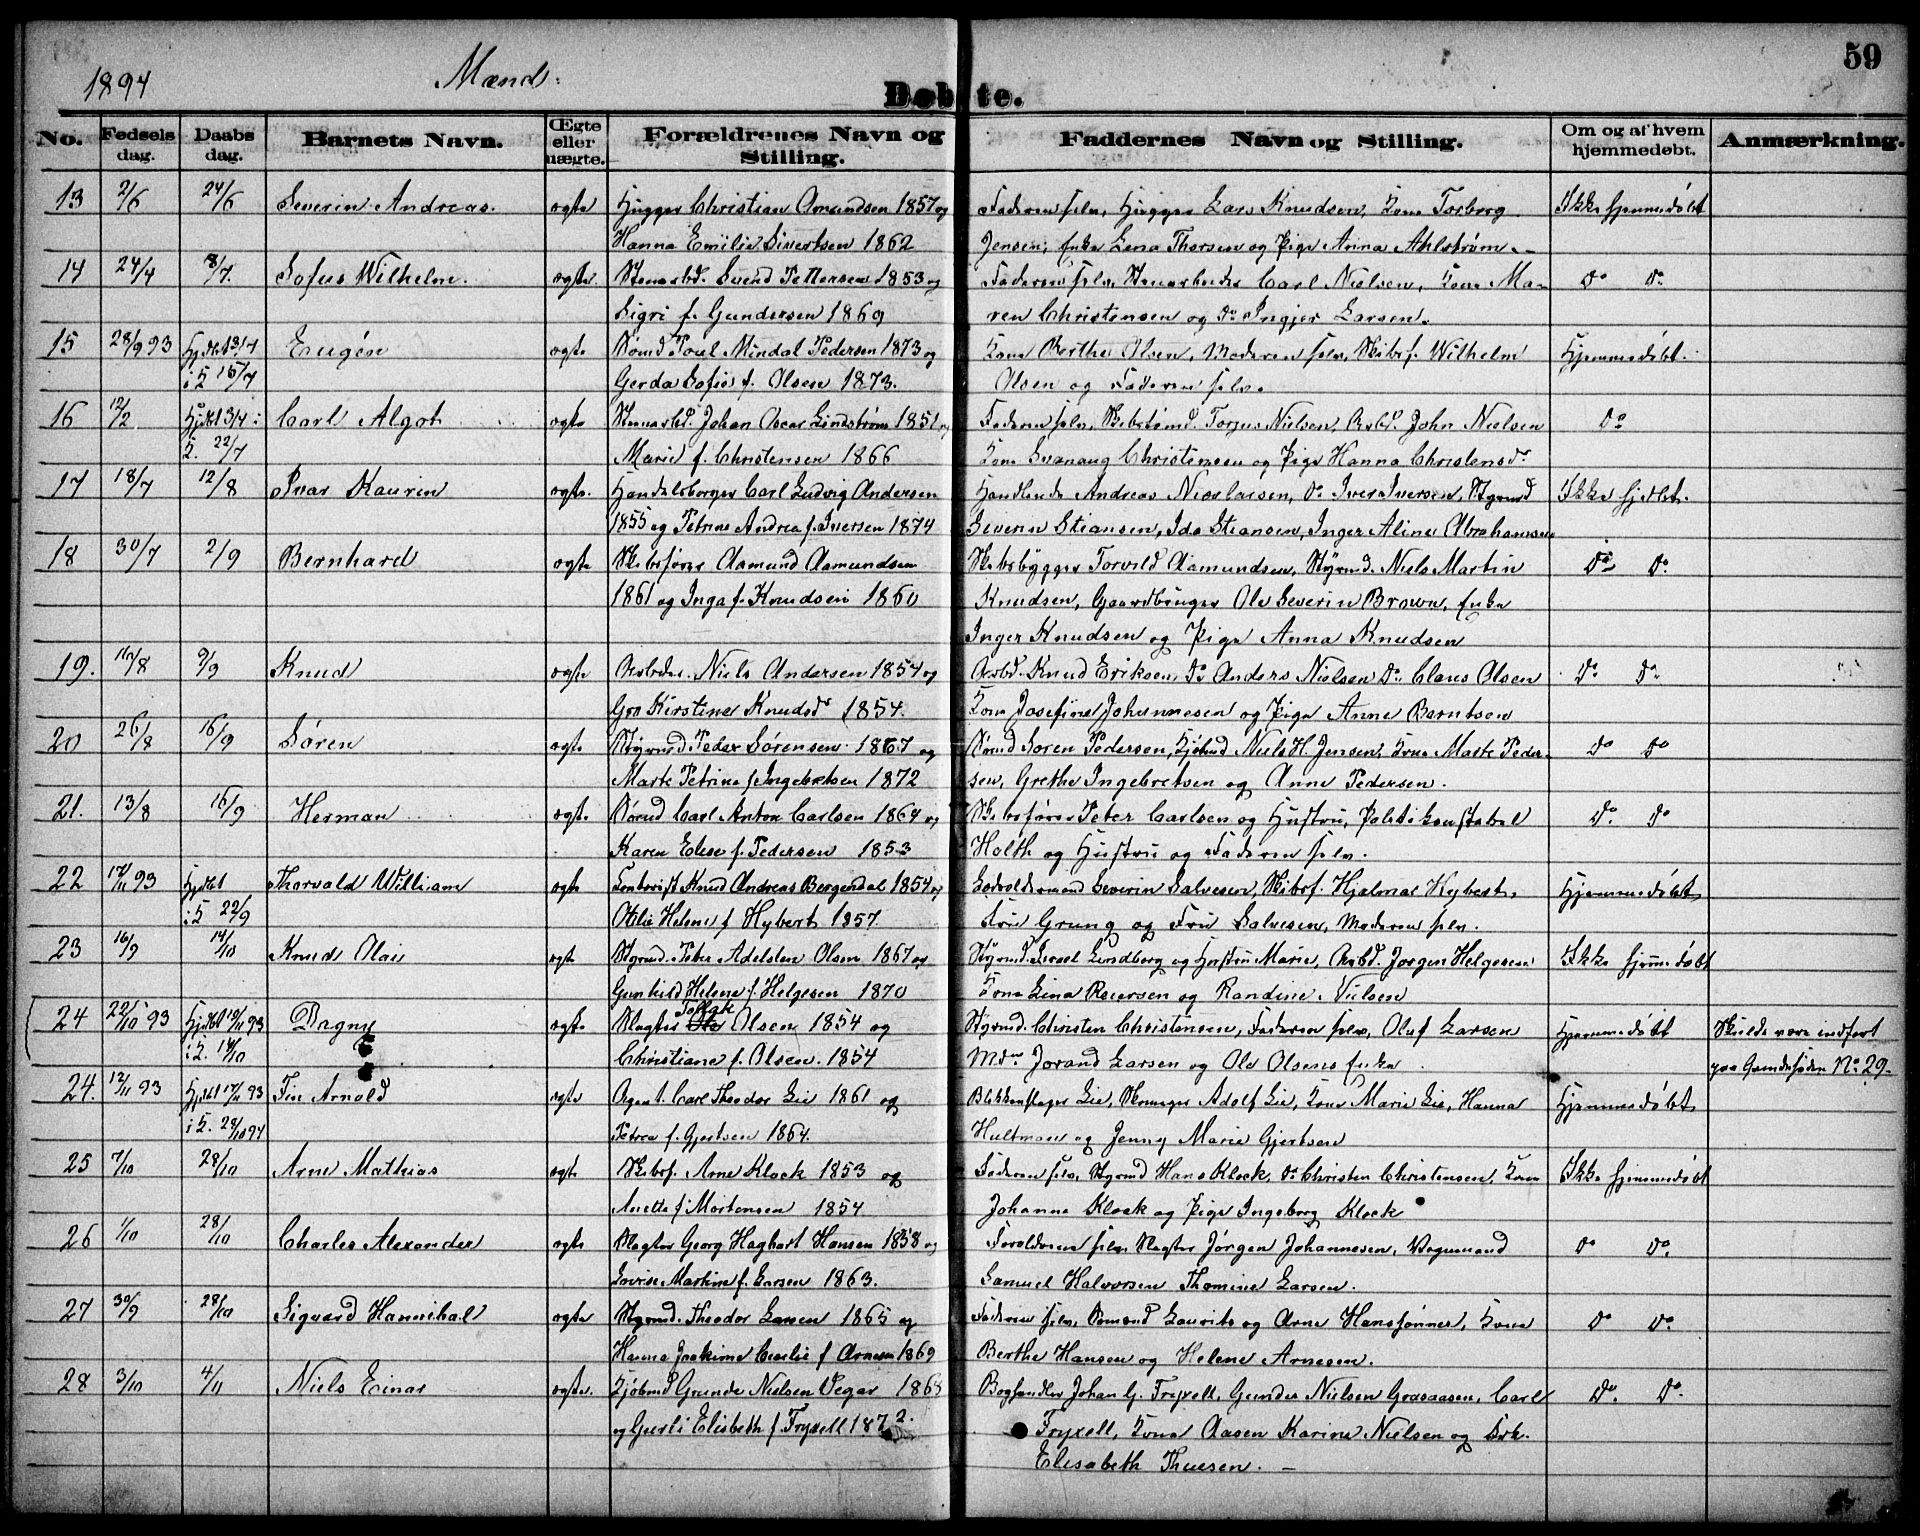 1894 Mænd.
59
Døbte.
No. Fødselsdag. Daabsdag. Barnets Navn. Ægte eller uægte. Forældrenes Navn og Stilling. Faddernes Navn og Stilling. Om og af hvem hjemmedøbt. Anmærkning.
13 2/6 24/6 Severin Andreas. ægte Hugger Christian Amundsen 1857 og Faderen selv, Hugger Lars Knudsen, Kone Torborg Ikke hjemmedøbt
Hanna Emilie Sivertsen 1862 Jensen, Enke Lena Thorsen og Pige Anna Ahlstrøm. —
14 24/4 8/7. Sofus Wilhelm. ægte Stenarbd. Svend Pettersen 1853 og Faderen selv, Stenarbeider Carl Nielsen, Kone Ma- Do Do
Sigri f. Gundersen 1860 ren Christensen og Do Ingjer Larsen.
15 28/9 93 Hjdbt 13/4 Eugén ægte Sømd Poul Mindal Pedersen 1873 og Kone Berthe Olsen, Moderen selv, Skibsf. Wilhelm Hjemmedøbt.
i K 15/7 Gerda Sofie f. Olsen 1873. Olsen og Faderen selv.
16 12/2 Hjdbt 3/4 i Carl Algot ægte Stenarbd. Johan Oscar Lindstrøm 1851 og Faderen selv, Skibstømd. Torjus Nielsen, Arbd. John Nielsen Do
K. 22/7 Marie f. Christensen 1866 Kone Svanaug Christensen og Pige Hanna Christensdr
17 18/7 12/8 Ivar Kaurin ægte. Handelsborger Carl Ludvig Andersen Handlende Andreas Nicolaisen, Do Iver Iversen, Styrmd Ikke hjdbt.
1855 og Petrine Andrea f. Iversen 1874 Severin Stiansen, Ida Stiansen, Inger Aline Abrahamsen
18 30/7 2/9 Bernhard ægte Skibsfører Aamund Aamundsen Skibsbygger Torvild Aamundsen, Styrmd. Niels Martin Do Do
1861 og Inga f. Knudsen 1860 Knudsen, Gaardbruger Ole Severin Brown, Enke
Inger Knudsen og Pige Anna Knudsen
19. 16/8 9/9 Knud ægte Arbeider. Niels Andersen 1854 og Arbd. Knud Eriksen, Do Anders Nielsen Do. Claus Olsen Do Do
Gro Kirstine Knudsdr 1854. Kone Josefine Johannesen og Pige Anne Berntsen
20 26/8 16/9 Søren ægte Styrmd Peder Sørensen 1867 og Sømd Soren Pedersen, Sjømd Niels H. Jensen, Kone Marte Peder- Do Do
Marte Petrine f. Ingebretsen 1872 sen, Grethe Ingebretsen og Anne Pedersen.
21. 13/8 16/9 Herman ægte Sømd Carl Anton Carlsen 1864 og Skibsfører Peter Carlsen og Hustru, Politikonstabel Do. Do
Karen Elise f. Pedersen 1853 Holth og Hustru og Faderen selv.
22 17/11 93 Hjdbt Thorvald William ægte Knud Andreas Bergendal 1854 og Severin Salvesen, Skibsf. Hjalmar Hybert, Hjemmedøbt
i K 22/9 Otilie Helene f Hybert 1857. Fru Grung og Fru Salvesen, Moderen selv.
23 16/9 14/10 Knud Olai ægte Styrmd. Peter Adelsten Olsen 1867 og Styrmd. Israel Lindberg og Hustru Marie, Arbd. Jørgen Helgesen Ikke hjemmedøbt
Gunhild Helene f. Helgesen 1870 Kone Lina Reiersen og Randine Nielsen
24 22/10 93 Hjdbt 19/11 93 Dagny ægte Slagter Ole Tollak Olsen 1854 og Styrmd. Christen Christensen, Faderen selv, Oluf Larsen Hjemmedøbt Skulde være indført
i K. 14/10 Christiane f. Olsen. 1854 Jorand Larsen og Ole Olsens Enke paa Qvindesiden No 29.
24. 12/11 93 Hjdbt 17/11 93 Fin Arnold ægte Agent. Carl Theodor Lie 1861 og Blikkenslager Lie, Adolf Lie, Kone Marie Lie, Hanna Hjemmedøbt
i K. 28/10 94 Petrea f. Gjertsen 1864. Hultman og Jenny Marie Gjertsen
25 7/10 28/10 Arne Mathias ægte Skibsf. Arne Klock 1853 og Faderen selv, Styrmd Hans Klock, Do Christen Christensen, Kone Ikke hjemmedøbt
Anette f Mortensen 1854. Johanne Klock og Pige Ingeborg Klock
26 1/10 28/10 Charles Alexander ægte Slagter Georg Hagbart Hansen 1858 og Forældrene selv, Slagter Jørgen Johannesen, Vognmand Do Do.
Lovise Martine f. Larsen 1863. Samuel Halvorsen Thomine Larsen.
27 30/9 28/10 Sigvard Hannibal ægte Styrmd. Theodor Larsen 1865 og Faderen selv, Sømænd Laurits og Arne Hanssønner, Kone Do Do.
Hanna Joakime Cecilie f. Arnesen 1869 Berthe Hansen og Helene Arnesen.
28 3/10 4/11 Niels Einar ægte. Sjømd Grunde Nielsen Vegar 1868 Boghandler Johan G. Fryxell, Gunder Nielsen Grasaasen, Carl Do. Do.
og Gusli Elisbeth f. Fryxell 1872. Fryxell, Kone Aasen Karine Nielsen og Frk.
Elisabeth Thuesen. —